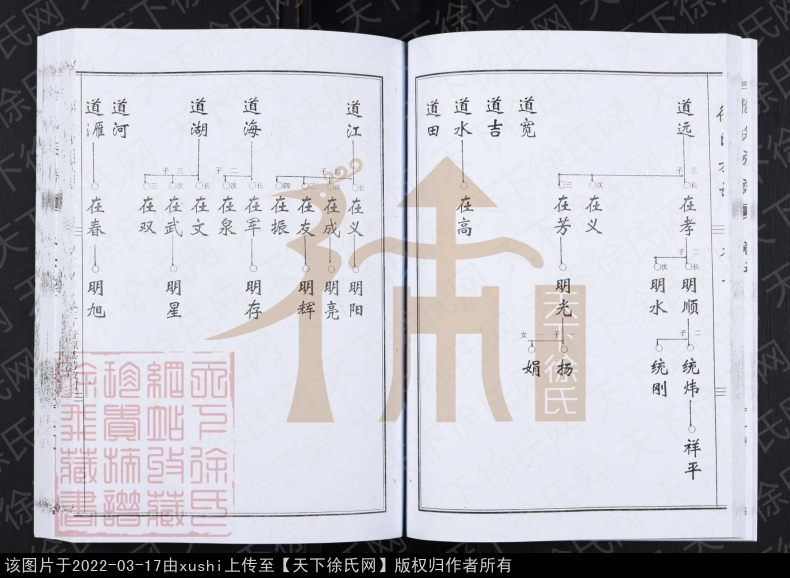 道远
三子
长 在孝
次 在义
三 在芳
二子
长 明顺
次 明水
明光
二子
统炜
统刚
子 扬
一女 娟
祥平
道宽
道吉
道水
在高
道田
道江
子
长 在义
在成
三 在友
四 在振
明阳
明亮
明辉
道海
二子
长 在军
次 在泉
明存
道湖
三子
长 在文
次 在武
三 在双
明星
道河
道雁
在春
明旭
天下徐氏
天下徐氏网
该图片于2022-03-17由xushi上传至【天下徐氏网】版权归作者所有